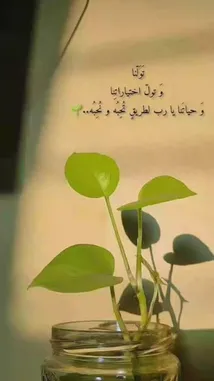 تَوَلّنا
وَ تولَ اختياراتنا
وَ حياتَنا يا رب لطريقٍ تُحِبُهُ و نُحِبُهُ..🌱